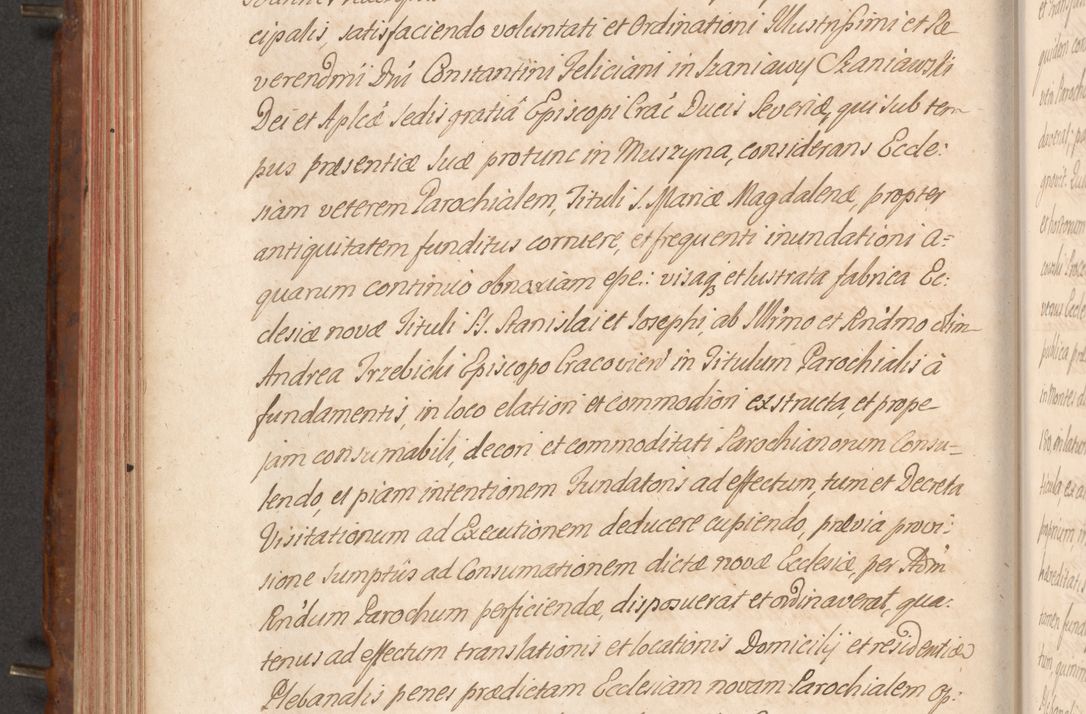 cipalis satisfaciendo voluntati et Ordinationi Illustrissimi et Re
verendmi Dni Constantini Feliciani in Szaniawy Szaniawski
Dei et Aplcæ Sedis gratiâ Episcopi Crac Ducis Severiæ, qui sub tem
pus præsentiæ suæ protunc in Muszyna, considerans Eccle:
siam veterem Parochialem, Tituli S. Mariæ Magdalenæ, propter
antiquitatem funditus corruere, et frequenti inundationi a=
quarum continuo obnoxiam esse: visaq et lustrata fabrica Ec:
clesiæ novæ Tituli SS. Stanislai et Josephi, ab Illmo et Rndmo olim
Andrea Trzebicki Episcopo Cracovien in Titulum Parochialis à
fundamentis, in loco elatiori et commodiori exstructa, et prope
jam consumabili, decori et commoditati Parochianorum Consu=
lendo, et piam intentionem Fundatoris ad effectum, tum et Decreta
Visitationum ad Executionem deducere cupiendo, prævia provi:
sione sumptûs ad Consumationem dictæ novæ Ecclesiæ, per Adm
Rndum Parochum perficiendæ, disposuerat et ordinaverat, qua:
tenus ad effectum translationis et locationis Domicilij et residentiæ
Plebanalis penes prædictam Ecclesiam novam Parochialem op: